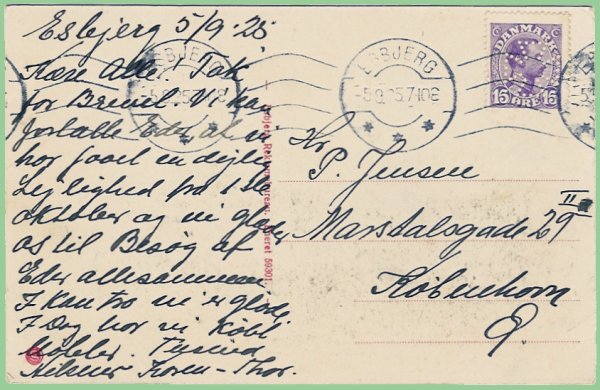 Esbjerg 5/9-25
Kære Alle! Tak
for Brevet Vi kan
fortælle Eder at vi
har faaet en dejlig
Lejlighed fra 1ste
Oktober og vi glæder
os til Besøg af
Eder allesammen
I kan tro vi er glade
I Dag har vi købt
Møbler. Tusind
Hilsner Karen - Thor.
ESBJERG
5.9.25.7-10E
DANMARK
15 15
ØRE
Hr
P. Jensen
Marstalsgade 29 II
København
Ø.